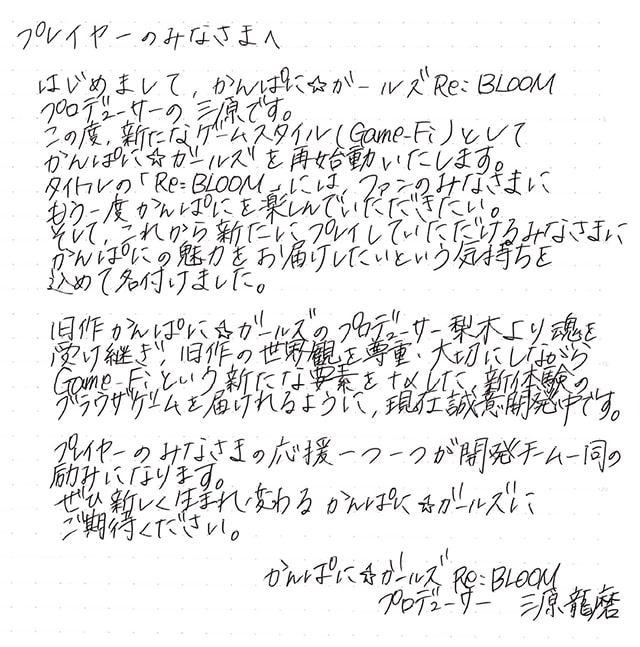 プレイヤーのみなさまへ
はじめまして、かんぱに☆ガールズRe:BLOOM
プロデューサーの三原です。
この度、新たなゲームスタイル(Game-Fi)として
かんぱに☆ガールズを再始動いたします。
タイトルの「Re:BLOOM」には、ファンのみなさまに
もう一度かんぱにを楽しんでいただきたい。
そして、これから新たにプレイしていただけるみなさまに
かんぱにの魅力をお届けしたいという気持ちを
込めて名付けました。
旧作かんぱに☆ガールズのプロデューサー梨木より魂を
受け継ぎ、旧作の世界観を尊重・大切にしながら
Game-Fiという新たな要素を+αした、新体験の
ブラウザゲームを届けれるように、現在誠意開発中です。
プレイヤーのみなさまの応援一つ一つが開発チーム一同の
励みになります。
ぜひ新しく生まれ変わるかんぱに☆ガールズに
ご期待ください。
かんぱに☆ガールズRe:BLOOM
プロデューサー 三原龍磨